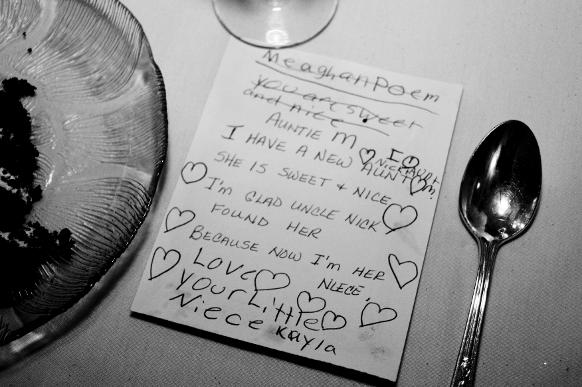 Meaghan Poem
You are sweet
and nice
AUNTIE M
I HAVE A NEW AUNT
SHE IS SWEET + NICE
I'm GLAD UNCLE NICK
FOUND HER
BECAUSE NOW I'm HER
NIECE,
Love
Your Little
Niece Kayla